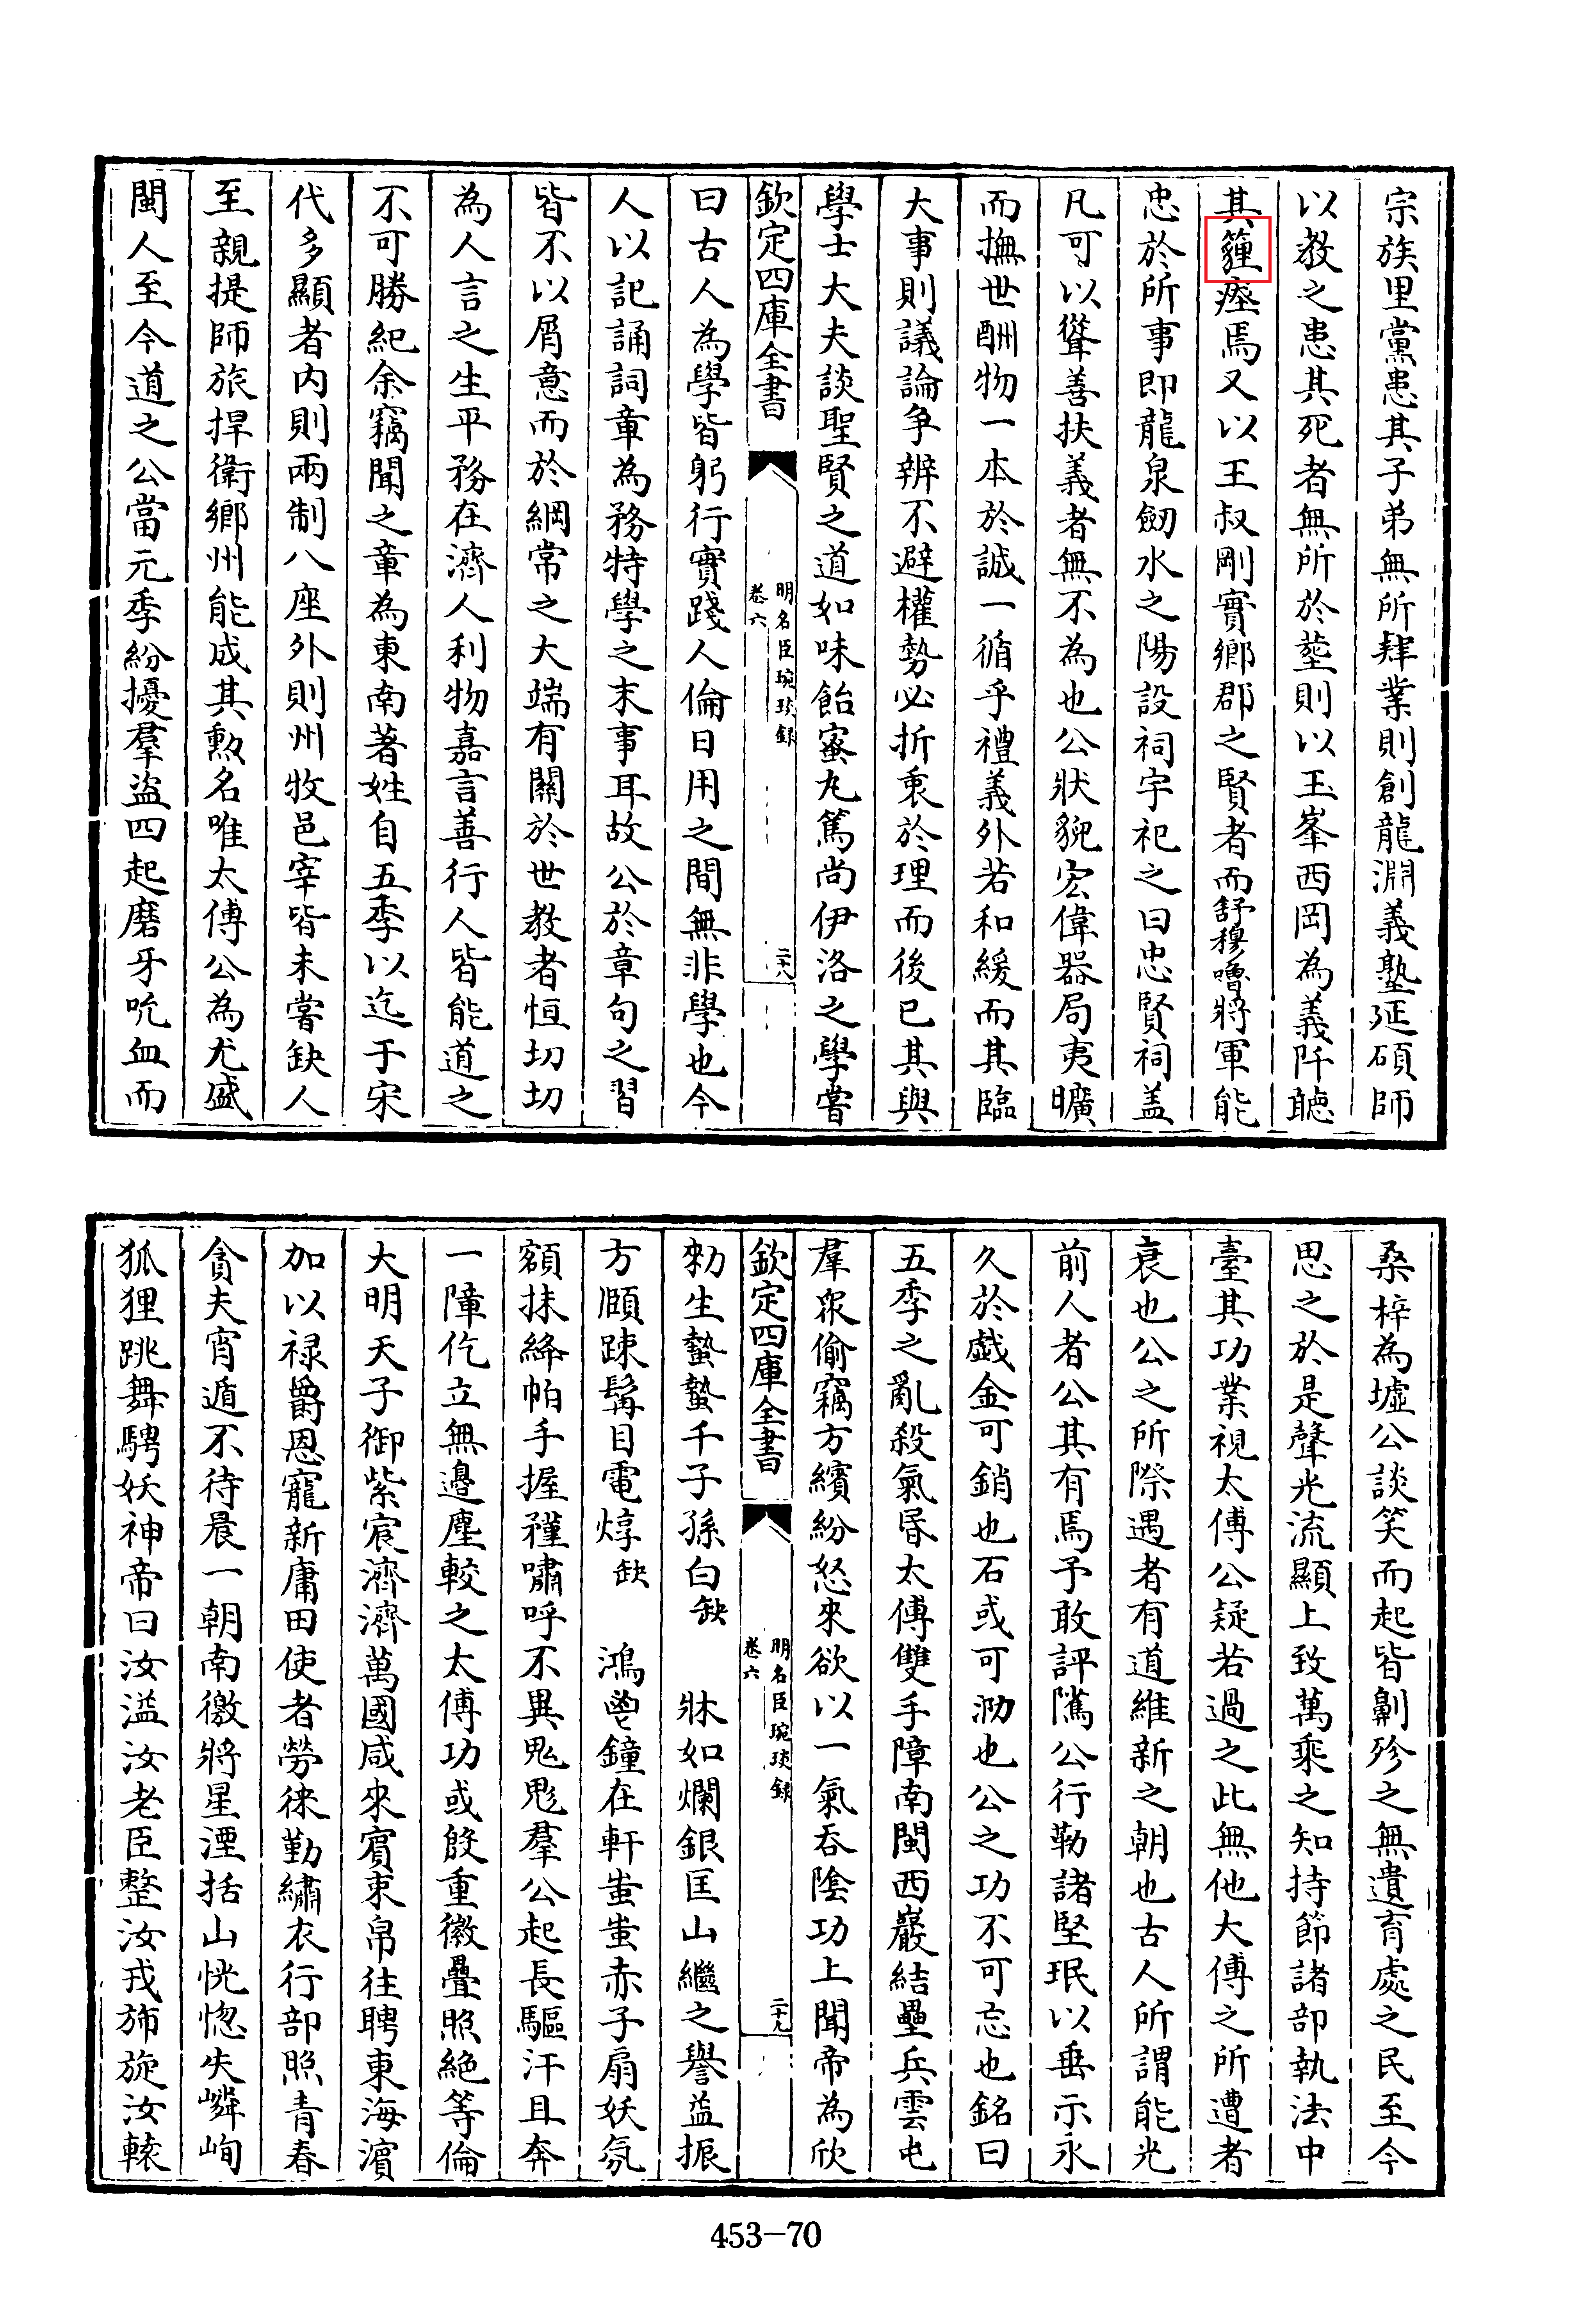 宗族里黨患其子弟無所肄業則創龍淵義塾延碩師
以教之患其死者無所於塟則以玉峯西岡為義阡聽
其薶瘞焉又以王叔剛實鄉郡之賢者而舒穆嚕將軍能
忠於所事即龍泉劒水之陽設祠宇祀之曰忠賢祠盖
凡可以聳善扶義者無不為也公狀貌宏偉器局夷曠
而撫世酬物一本於誠一循乎禮義外若和緩而其臨
大事則議論争辨不避權勢必折衷於理而後已其與
學士大夫談聖賢之道如味飴蜜尤篤尚伊洛之學嘗
欽定四庫全書
明名臣琬琰錄
卷六
二十八
曰古人為學皆躬行實踐人倫日用之間無非學也今
人以記誦詞章為務特學之末事耳故公於章句之習
皆不以屑意而於綱常之大端有關於世教者恒切切
為人言之生平務在濟人利物嘉言善行人皆能道之
不可勝紀余竊聞之章為東南著姓自五季以迄于宋
代多顯者内則兩制八座外則州牧邑宰皆未嘗缺人
至親提師旅捍衛鄉州能成其勲名唯太傅公為尤盛
閩人至今道之公當元季紛擾羣盗四起磨牙吮血而
桑梓為墟公談笑而起皆劓殄之無遺育處之民至今
思之於是聲光流顯上致萬乘之知持節諸部執法中
臺其功業視太傅公疑若過之此無他大傅之所遭者
衰也公之所際遇者有道維新之朝也古人所謂能光
前人者公其有焉予敢評隲公行勒諸堅珉以垂示永
久於戯金可銷也石或可泐也公之功不可忘也銘曰
五季之亂殺氣昏太傅雙手障南閩西巖結壘兵雲屯
羣衆偷竊方繽紛怒來欲以一氣吞陰功上聞帝為欣
欽定四庫全書
明名臣琬琰錄
卷六
二十九
勑生蟄蟄千子孫白缺 牀如爛銀匡山繼之譽益振
方頤疎髯目電焞缺 鴻鬯鐘在軒蚩蚩赤子扇妖氛
額抹絳帕手握矟嘯呼不異鬼彪羣公起長驅汗且奔
一障仡立無邊塵較之太傅功或殷重徽疊照絶等倫
大明天子御紫宸濟濟萬國咸來賓束帛往聘東海濱
加以禄爵恩寵新庸田使者勞徠勤繡衣行部照青春
貪夫宵遁不待晨一朝南徼將星湮括山恍惚失嶙峋
狐狸跳舞騁妖神帝曰汝溢汝老臣整汝戎斾旋汝轅
453-70